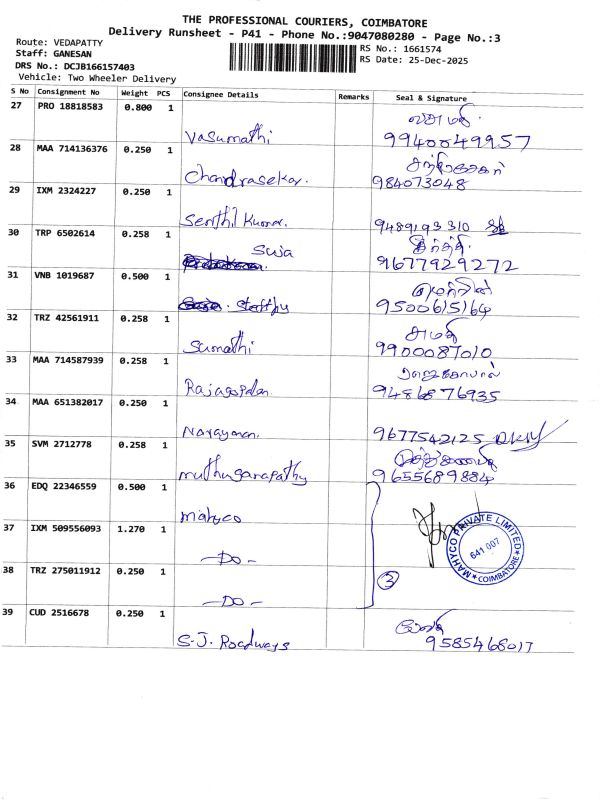 THE PROFESSIONAL COURIERS, COIMBATORE
Delivery Runsheet - P41 - Phone No.:9047080280 - Page No.:3
Route: VEDAPATTY
Staff: GANESAN
DRS No.: DCJB166157403
Vehicle: Two Wheeler Delivery
RS No.: 1661574
RS Date: 25-Dec-2025
S No Consignment No Weight PCS Consignee Details Remarks Seal & Signature
27 PRO 18818583 0.800 1
Vasumathi 9940049957
28 MAA 714136376 0.250 1
Chandrasekar. 984073048
29 IXM 2324227 0.250 1
Senthil Kumar. 9489193310
30 TRP 6502614 0.258 1
Suja 9677929272
31 VNB 1019687 0.500 1
9500615164
32 TRZ 42561911 0.258 1
சுமதி
Sumathi 9900087010
33 MAA 714587939 0.258 1
ராஜகோபால்
Rajagopalan. 9486876935
34 MAA 651382017 0.250 1
Narayanan. 9677542125
35 SVM 2712778 0.258 1
muthuganapathy 9655689884
36 EDQ 22346559 0.500 1
mahyco
37 IXM 509556093 1.270 1
-DO-
38 TRZ 275011912 0.250 1
-DO-
3
MAHYCO PRIVATE LIMITED
641 007
COIMBATORE
39 CUD 2516678 0.250 1
S.J. Roadways 9585468017